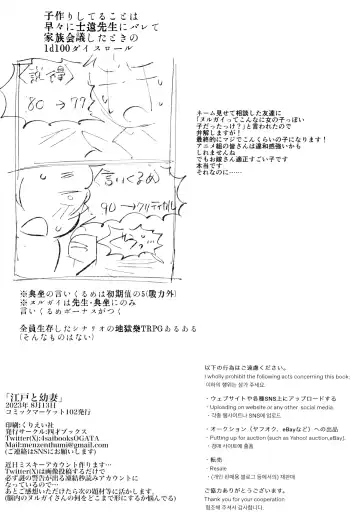 子作りしてることは
早々に士遠先生にバレて
家族会議したときの
1d100ダイスロール
説得
80→77
言いくるめ
90→クリティカル
ネーム見せて相談した友達に
「ヌルガイってこんなに女の子っぽい
子だったっけ?」と言われたので
弁解しますが!
最終的にマジでこんくらいの子になります!
アニメ組の皆さんは違和感強いかも
しれませんね
でもお嫁さん適正すごい子です
本当です
それなのに……
※典坐の言いくるめは初期値の5(眼力外)
※ヌルガイは先生・典坐にのみ
言いくるめボーナスがつく
全員生存したシナリオの地獄樂TRPGあるある
(そんなものはない)
「江戸と幼妻」
2023年 8月13日
コミックマーケット102発行
印刷:くりえい社
発行サークル:四才ブックス
Twitter(X):4saibooksOGATA
Mail:menzenthumi@gmail.com
(ご連絡はSNSにお願いします)
近日ミスキーアカウント作ります…
Twitter(X)は画像投稿するだけで
必ず謎の警告が出る凍結秒読みアカウントに
なっているので…
あとご感想いただけたら次の題材等に活かします。
(脳内のヌルガイさんの何をどこまで形にするか悩んでる)
以下の行為はご遠慮ください。
I wholly prohibit the following acts concerning this book.
이하의 행위는 삼가 주세요.
・ウェブサイトや各種SNS上にアップロードする
・Uploading on website or any other social media.
・각종 웹사이트나 SNS에 업로드
・オークション(ヤフオク、eBayなど)への出品
・Putting up for auction (such as Yahoo! auction,eBay).
・경매 사이트에 출품
・転売
・Resale
・(개인 판매용 블로그 등에서의) 재판매
ご協力ありがとうございます。
Thank you for your cooperation
협조해 주셔서 감사합니다.